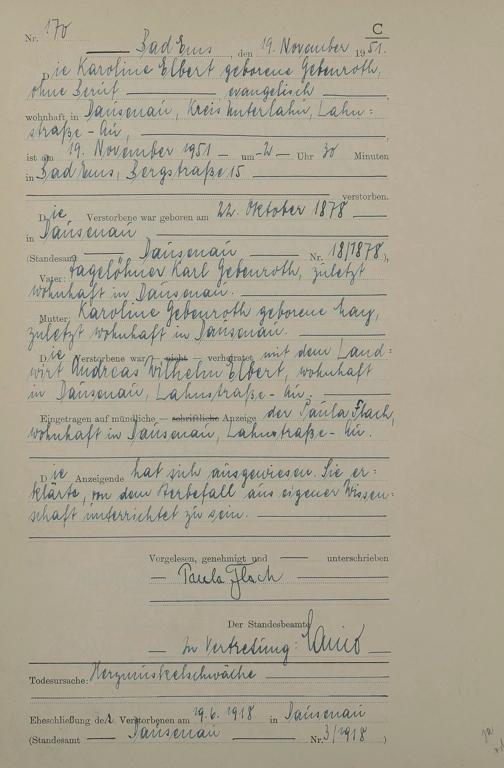 Nr. 170
C
Bad Ems, den 19. November 1951.
Die Karoline Elbert geborene Gebenroth,
ohne Beruf evangelisch
wohnhaft in Dausenau, Kreis Unterlahn, Lahn=
straße
ist am 19. November 1951 um 2 Uhr 30 Minuten
in Bad Ems, Bergstraße 15
verstorben.
Die Verstorbene war geboren am 22. Oktober 1878
in Dausenau
(Standesamt Dausenau Nr. 18/1878),
Vater: Tagelöhner Karl Gebenroth, zuletzt
wohnhaft in Dausenau.
Mutter: Karoline Gebenroth geborene May,
zuletzt wohnhaft in Dausenau.
Die Verstorbene war — nicht — verheiratet mit dem Land=
wirt Andreas Wilhelm Elbert, wohnhaft
in Dausenau, Lahnstraße
Eingetragen auf mündliche — schriftliche Anzeige der Paula Flach,
wohnhaft in Dausenau, Lahnstraße
Die Anzeigende hat sich ausgewiesen. Sie er=
klärte, von dem Sterbefall aus eigener Wissen=
schaft unterrichtet zu sein.
Vorgelesen, genehmigt und unterschrieben
Paula Flach
Der Standesbeamte
In Vertretung:
Todesursache: Herzmuskelschwäche
Eheschließung der Verstorbenen am 19.6.1918 in Dausenau
(Standesamt Dausenau Nr. 3/1918)